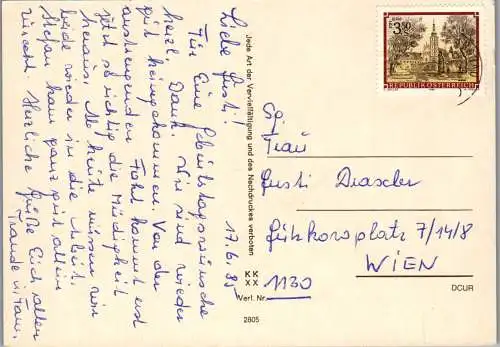 17.6.85
Liebe Gusti!
Für Eure Geburtstagswünsche
herzl. Dank. Wir sind wieder
gut heimgekommen. Von der
anstrengenden Fahrt kommt erst
jetzt so richtig die Müdigkeit
heraus. Ab heute müssen wir
beide wieder in die Arbeit.
Stefan kann ganz gut allein
Herzliche Grüße Euch allen
Traude u. Fam.
Jede Art der Vervielfältigung und des Nachdruckes verboten
KK
XX
Verl. Nr.
2805
3.50
REPUBLIK ÖSTERREICH
Frau
Gusti Draxler
platz 7/14/8
1130 WIEN
DCUR